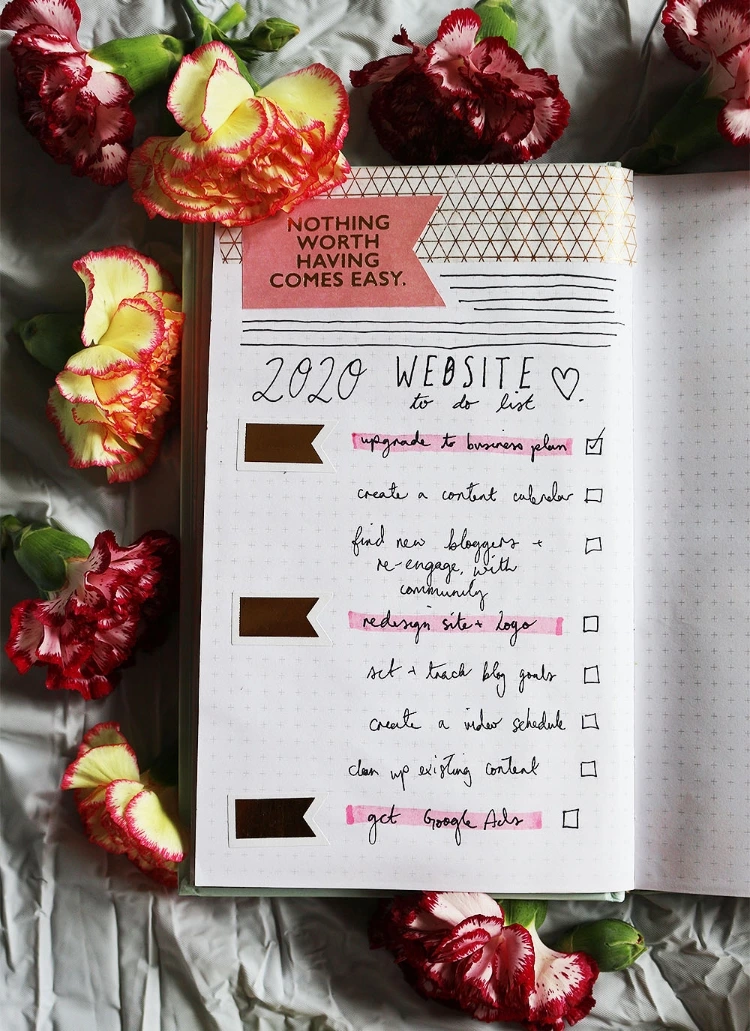 NOTHING
WORTH
HAVING
COMES EASY.
2020 WEBSITE ♡.
to do list
upgrade to business plan
create a content calendar
find new bloggers +
re-engage, with
community
redesign site + logo
set + track blog goals
create a video schedule
clean up existing content
get Google Ads